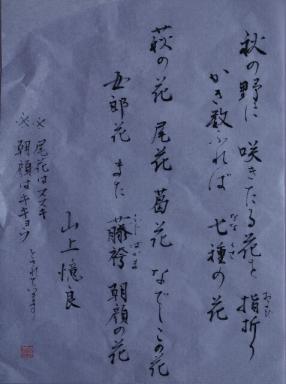 秋の野に 咲きたる花を 指折り
かき数ふれば 七種の花
萩の花 尾花 葛花 なでしこの花
女郎花 また 藤袴 朝顔の花
山上憶良
※ 尾花はススキ
※ 朝顔はキキョウ
とされています